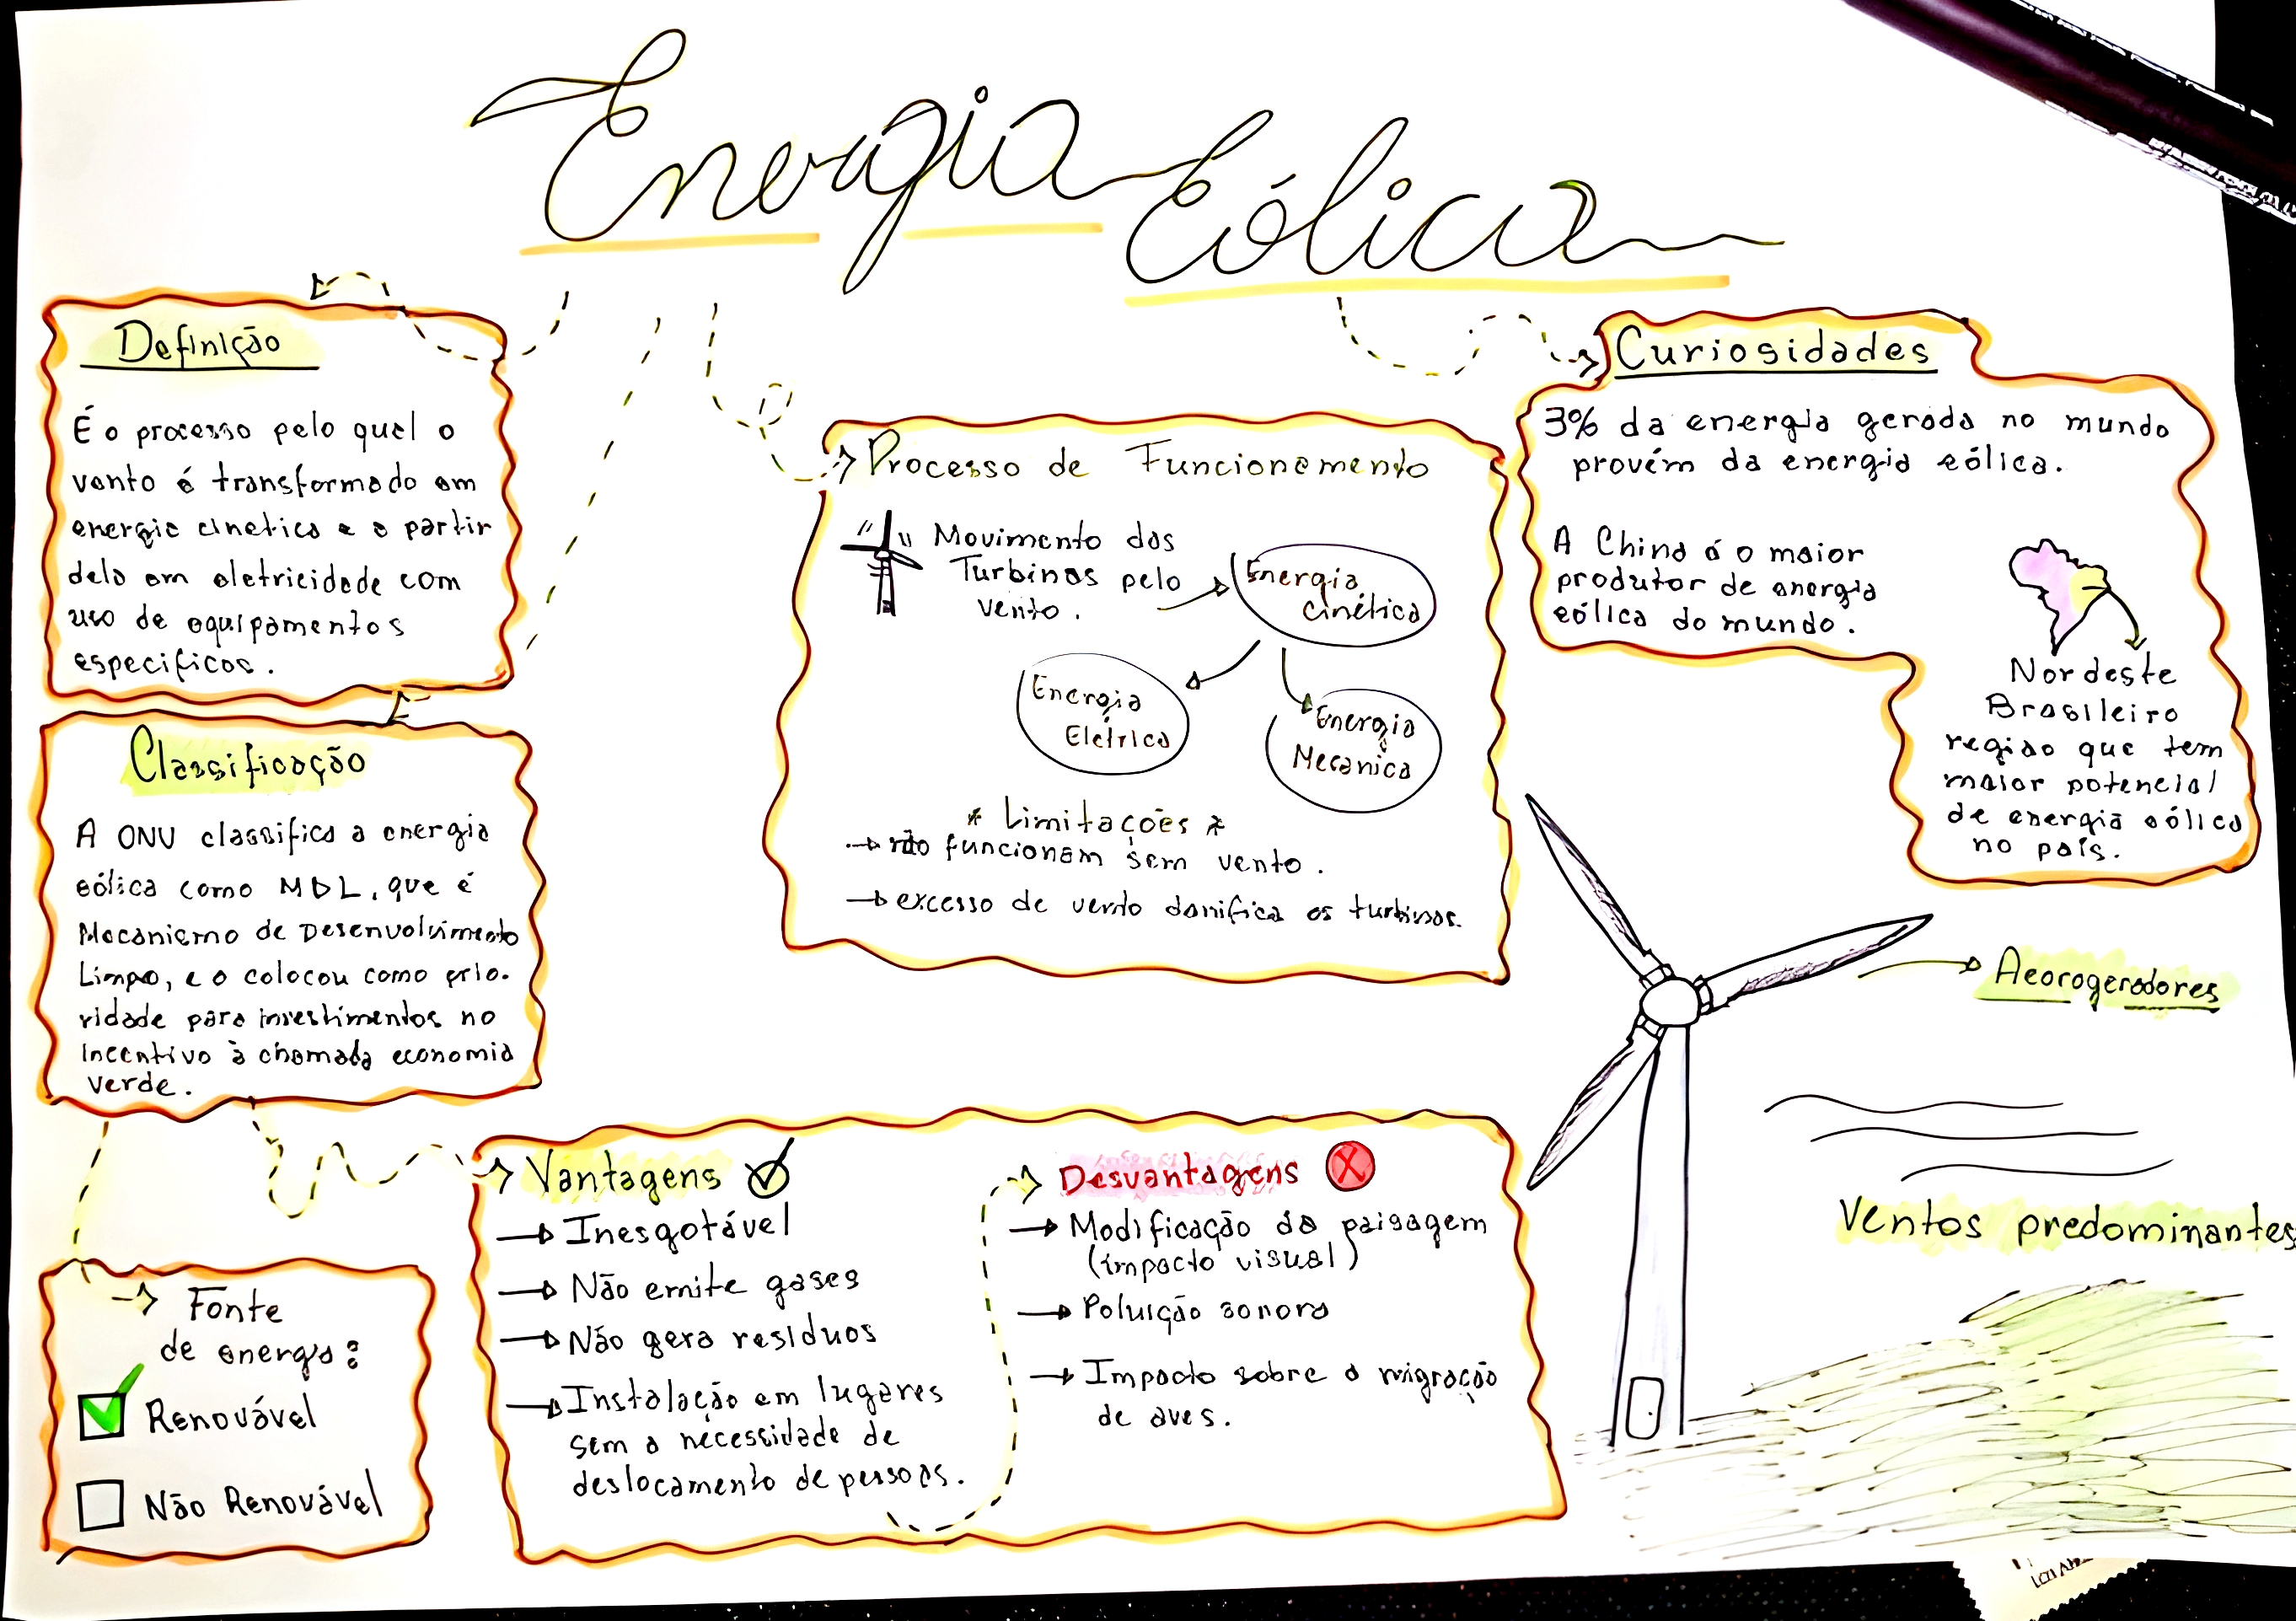 Energia
Eólica
Definição
É o processo pelo qual o
vento é transformado em
energia cinética e a partir
dela em eletricidade com
uso de equipamentos
especificos.
Classificação
A ONU classifica a energia
eólica como MDL, que é
Mecanismo de Desenvolvimento
Limpo, e o colocou como prio-
ridade para investimentos no
incentivo à chamada economia
verde.
Fonte
de energia:
Renovável
Não Renovável
Processo de Funcionamento
Movimento das
Turbinas pelo
vento.
Energia
cinética
Energia
Elétrica
Energia
Mecanica
* Limitações *
não funcionam sem vento.
excesso de vento danifica as turbinas.
Vantagens
Inesgotável
Não emite gases
Não gera resíduos
Instalação em lugares
sem a necessidade de
deslocamento de pessoas.
Desvantagens
Modificação da paisagem
(impacto visual)
Poluição sonora
Impacto sobre a migração
de aves.
Curiosidades
3% da energia gerada no mundo
provém da energia eólica.
A China é o maior
produtor de energia
eólica do mundo.
Nordeste
Brasileiro
região que tem
maior potencial
de energia eólica
no país.
Aeorogeradores
Ventos predominantes